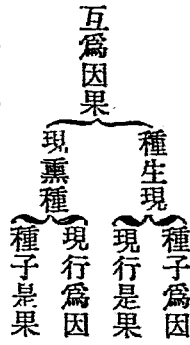 互爲因果
種生現
種子爲因
現行是果
現熏種
現行爲因
種子是果